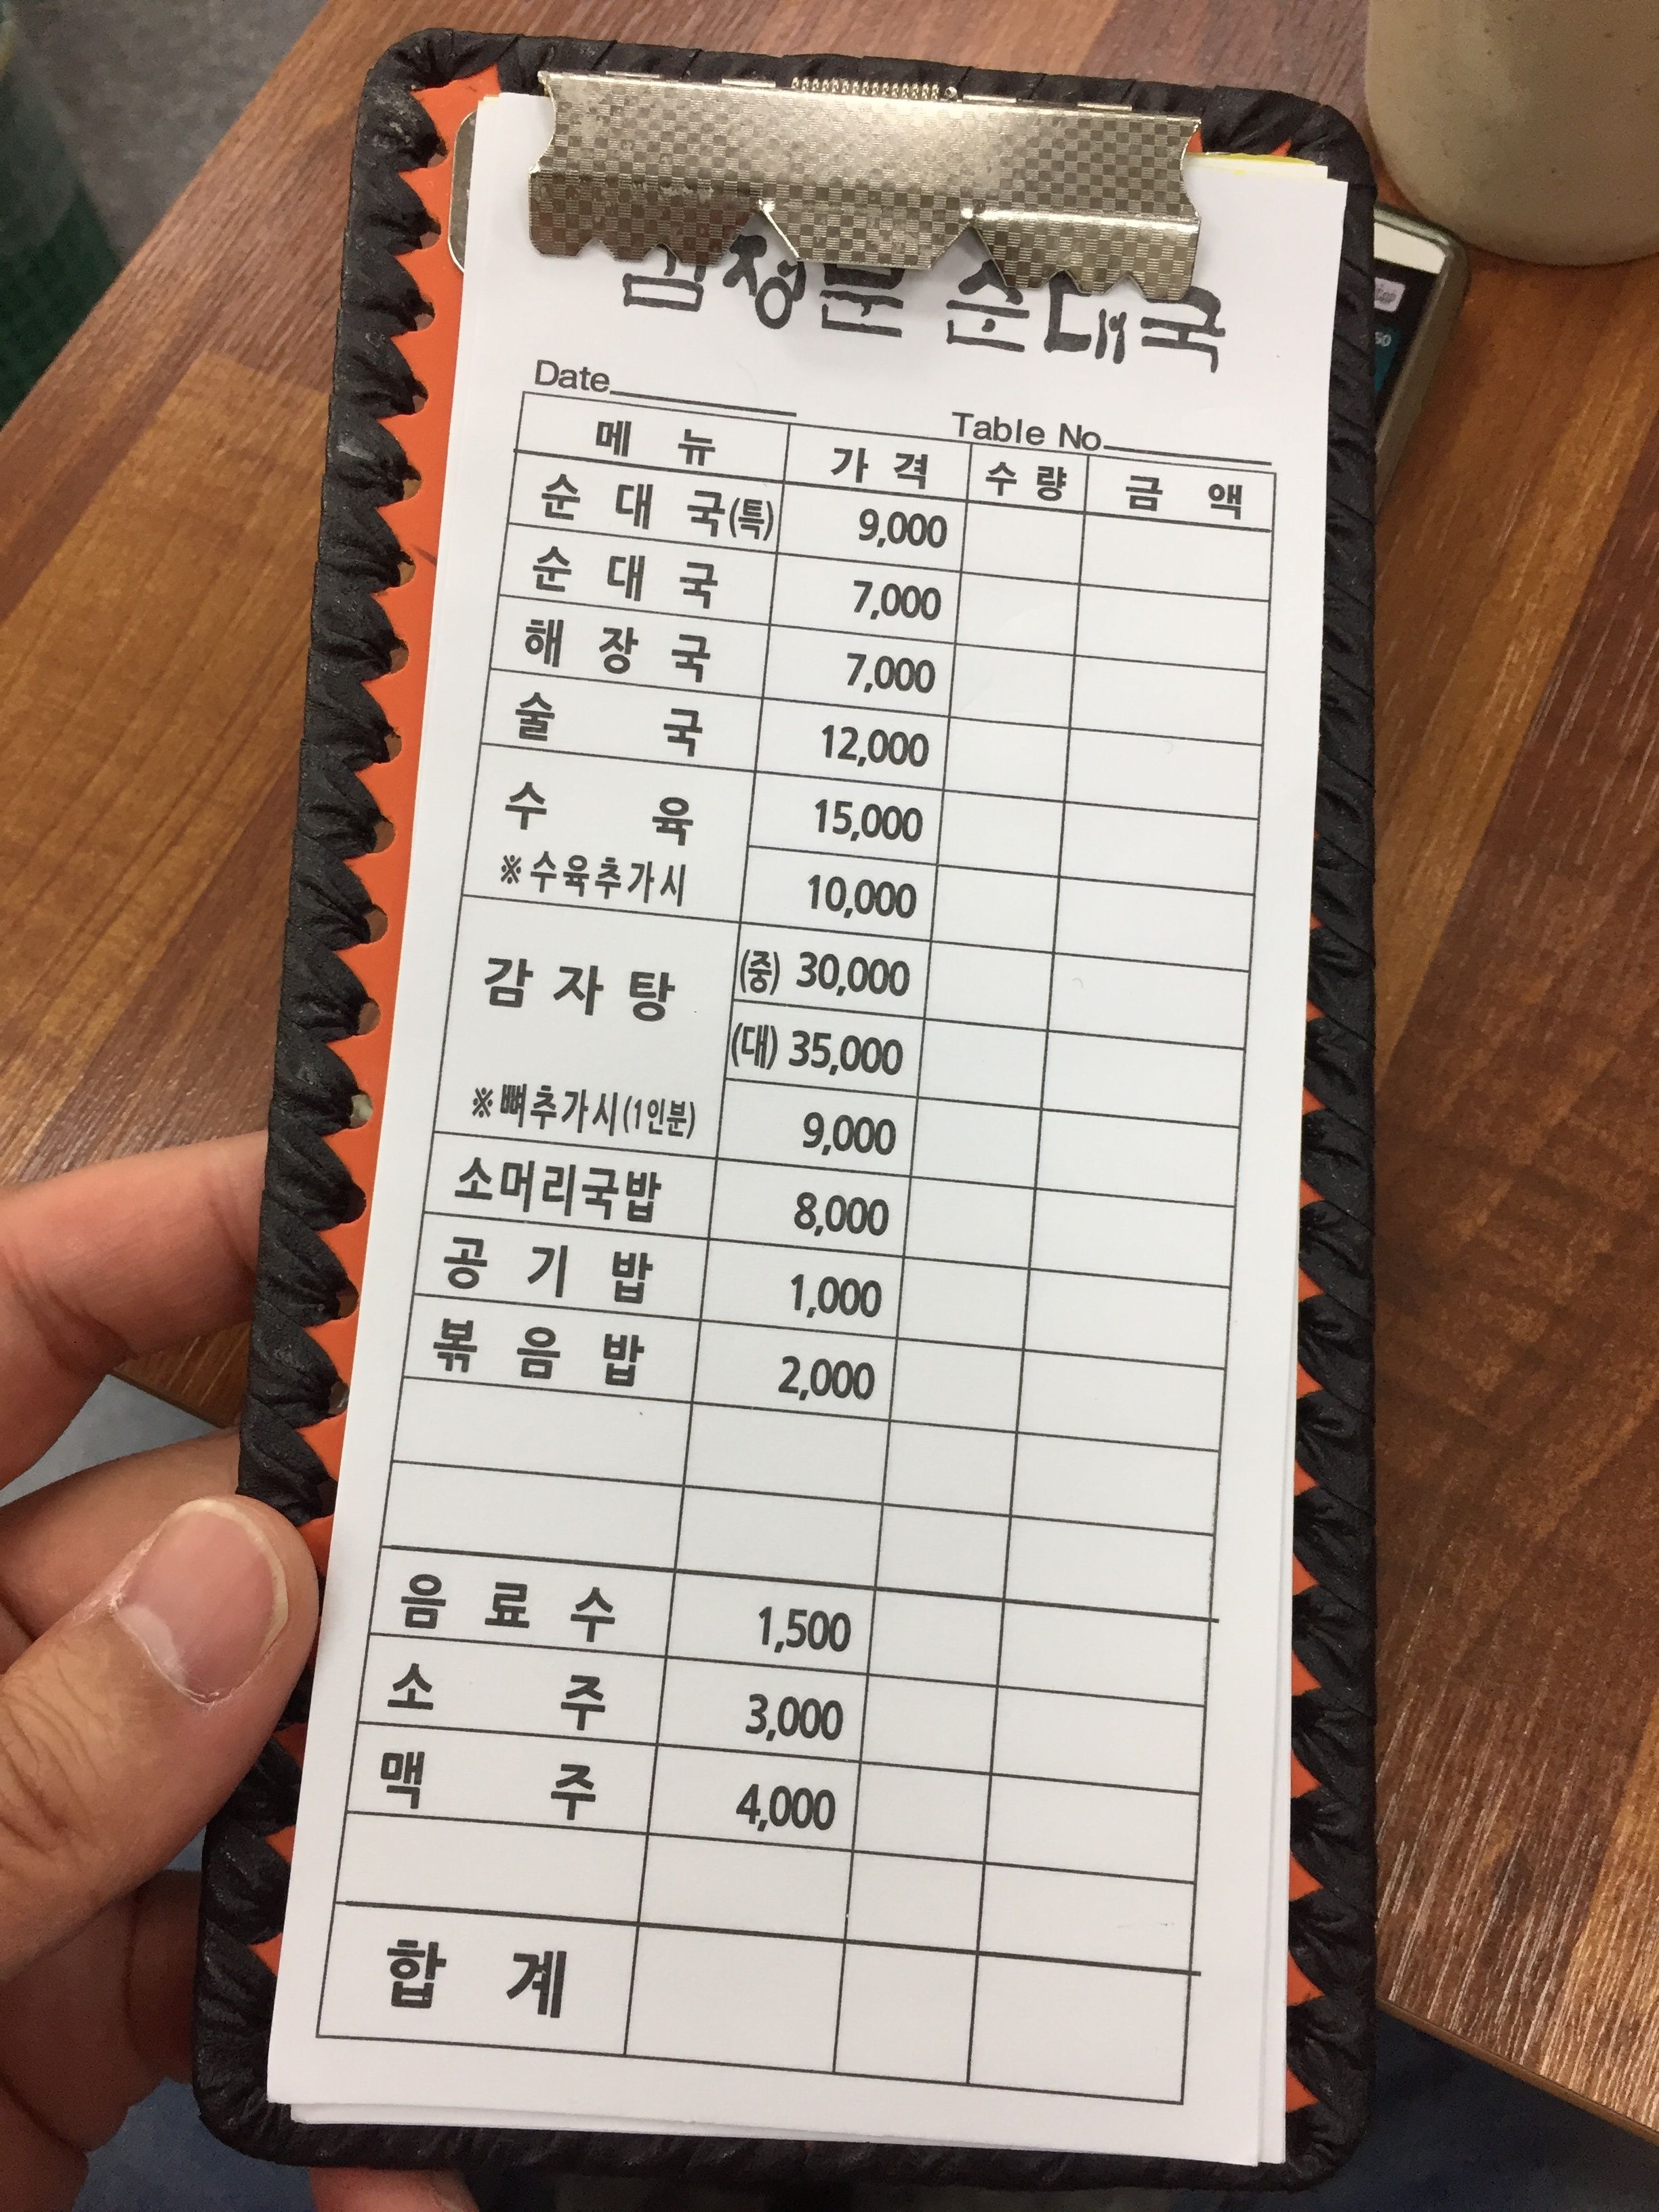 순대국
Date
Table No
메 뉴 가 격 수 량 금 액
순 대 국(특) 9,000
순 대 국 7,000
해 장 국 7,000
술 국 12,000
수 육 15,000
※수육추가시 10,000
감 자 탕 (중) 30,000
(대) 35,000
※뼈추가시(1인분) 9,000
소머리국밥 8,000
공 기 밥 1,000
볶 음 밥 2,000
음 료 수 1,500
소 주 3,000
맥 주 4,000
합 계